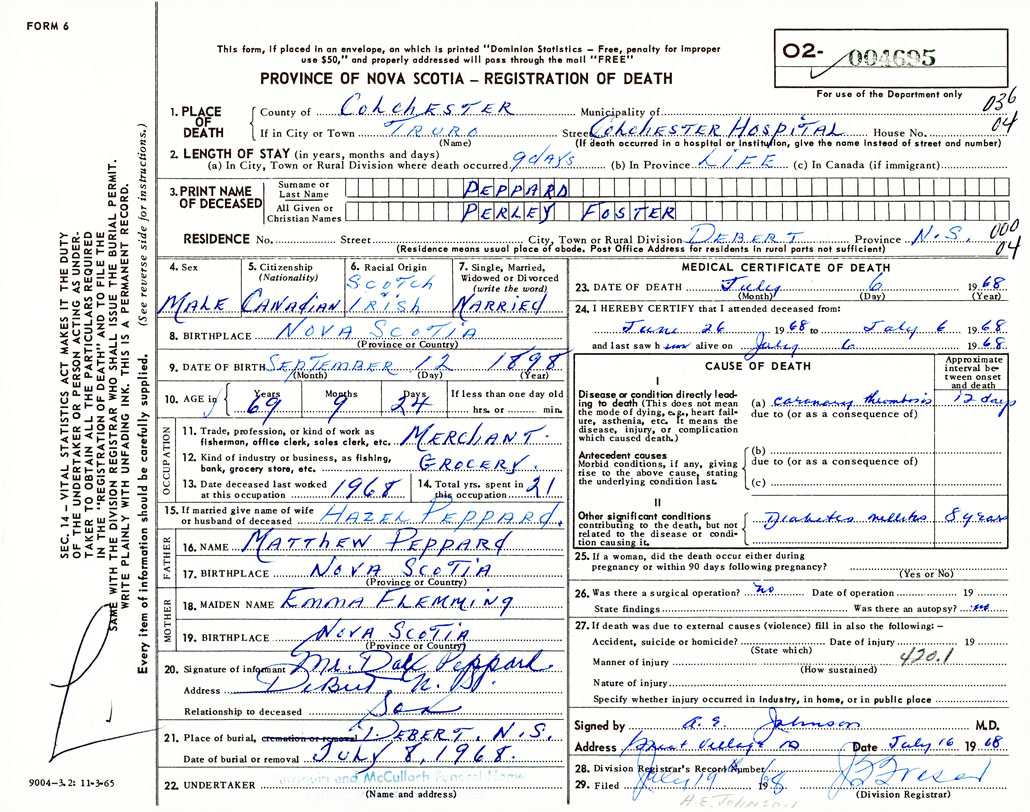 FORM 6
This form, if placed in an envelope, on which is printed "Dominion Statistics – Free, penalty for improper
use $50," and properly addressed will pass through the mail "FREE"
PROVINCE OF NOVA SCOTIA – REGISTRATION OF DEATH
O2- 004695
For use of the Department only
036
04
1. PLACE OF DEATH
County of COLCHESTER Municipality of
If in City or Town TRURO Street COLCHESTER HOSPITAL House No.
(Name) (If death occurred in a hospital or institution, give the name instead of street and number)
2. LENGTH OF STAY (in years, months and days)
(a) In City, Town or Rural Division where death occurred 9 days (b) In Province LIFE (c) In Canada (if immigrant)
3. PRINT NAME OF DECEASED
Surname or Last Name PEPPARD
All Given or Christian Names PERLEY FOSTER
RESIDENCE No. Street City, Town or Rural Division DEBERT Province N.S. 000
04
(Residence means usual place of abode. Post Office Address for residents in rural parts not sufficient)
4. Sex MALE
5. Citizenship (Nationality) CANADIAN
6. Racial Origin SCOTCH IRISH
7. Single, Married, Widowed or Divorced (write the word) MARRIED
8. BIRTHPLACE NOVA SCOTIA
(Province or Country)
9. DATE OF BIRTH SEPTEMBER 12 1898
(Month) (Day) (Year)
10. AGE in Years 69 Months 9 Days 24 If less than one day old
hrs. or min.
OCCUPATION
11. Trade, profession, or kind of work as
fisherman, office clerk, sales clerk, etc. MERCHANT.
12. Kind of industry or business, as fishing,
bank, grocery store, etc. GROCERY.
13. Date deceased last worked
at this occupation 1968
14. Total yrs. spent in
this occupation 21
15. If married give name of wife
or husband of deceased HAZEL PEPPARD.
FATHER
16. NAME MATTHEW PEPPARD
17. BIRTHPLACE NOVA SCOTIA
(Province or Country)
MOTHER
18. MAIDEN NAME EMMA FLEMMING
19. BIRTHPLACE NOVA SCOTIA
(Province or Country)
20. Signature of informant Mr. Dale Peppard.
Address Debert, N.S.
Relationship to deceased Son
21. Place of burial, cremation or removal DEBERT, N.S.
Date of burial or removal JULY 8, 1968.
22. UNDERTAKER and McCulloch Funeral Home
(Name and address)
MEDICAL CERTIFICATE OF DEATH
23. DATE OF DEATH July 6 1968
(Month) (Day) (Year)
24. I HEREBY CERTIFY that I attended deceased from:
June 26 1968 to July 6 1968
and last saw him alive on July 6 1968
CAUSE OF DEATH
Approximate interval between onset and death
I
Disease or condition directly leading to death (This does not mean
the mode of dying, e.g., heart failure, asthenia, etc. It means the
disease, injury, or complication
which caused death.)
(a) coronary thrombosis 12 days
due to (or as a consequence of)
Antecedent causes
Morbid conditions, if any, giving
rise to the above cause, stating
the underlying condition last.
(b)
due to (or as a consequence of)
(c)
II
Other significant conditions
contributing to the death, but not
related to the disease or condition causing it.
Diabetes mellitus 8 years
25. If a woman, did the death occur either during
pregnancy or within 90 days following pregnancy?
(Yes or No)
26. Was there a surgical operation? no Date of operation 19
State findings Was there an autopsy? no
27. If death was due to external causes (violence) fill in also the following: –
Accident, suicide or homicide? Date of injury 19
(State which)
Manner of injury 420.1
(How sustained)
Nature of injury
Specify whether injury occurred in industry, in home, or in public place
Signed by A. E. Johnson M.D.
Address Great Village NS Date July 16 1968
28. Division Registrar's Record Number
29. Filed July 19 1968
(Division Registrar)
H.E. JOHNSON
SEC. 14 – VITAL STATISTICS ACT MAKES IT THE DUTY
OF THE UNDERTAKER OR PERSON ACTING AS UNDERTAKER TO OBTAIN ALL THE PARTICULARS REQUIRED
IN THE "REGISTRATION OF DEATH" AND TO FILE THE
SAME WITH THE DIVISION REGISTRAR WHO SHALL ISSUE THE BURIAL PERMIT.
WRITE PLAINLY WITH UNFADING INK. THIS IS A PERMANENT RECORD.
Every item of information should be carefully supplied. (See reverse side for instructions.)
9004–3.2: 11-3-65